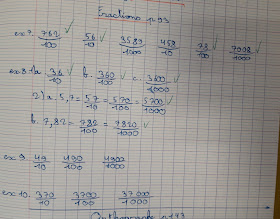 Fractions p 93
ex 7. 752/100 ✓ 56/10 ✓ 3589/1000 ✓ 458/10 ✓ 78/100 ✓ 7008/1000 ✓
ex 8. 1)a. 36/10 ✓ b. 360/100 ✓ c. 3600/1000 ✓
2) a. 5,7 = 57/10 = 570/100 = 5700/1000 ✓
b. 7,82 = 782/100 = 7820/1000 ✓
ex 9. 49/10 490/100 4900/1000
ex 10. 370/10 3700/100 37000/1000
p 143